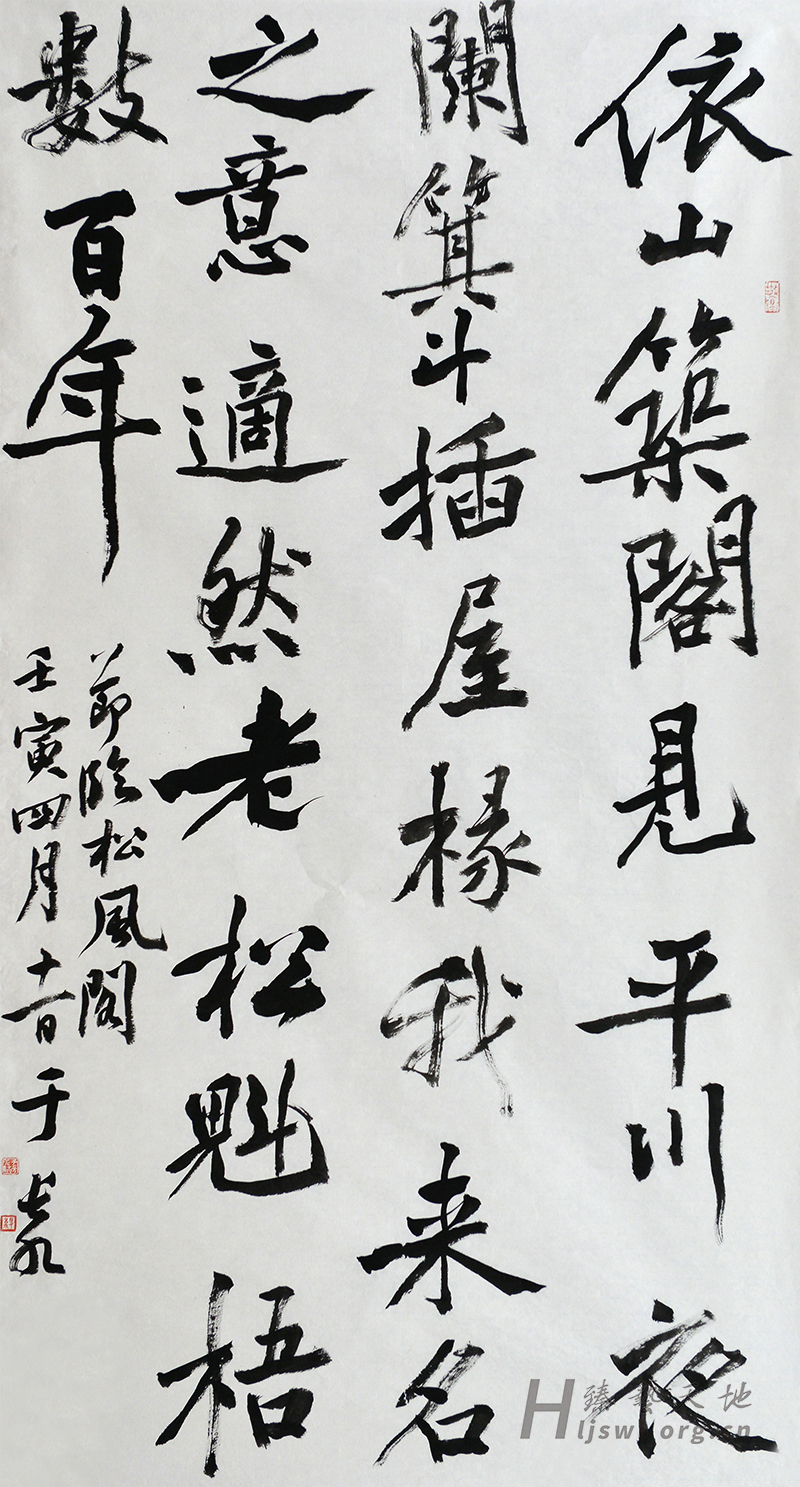 依山築閣見平川夜
闌箕斗插屋椽我来名
之意適然老松魁梧
數百年
節臨松風閣
壬寅四月十一日于長
臻藝天地
Hljswy.org.cn